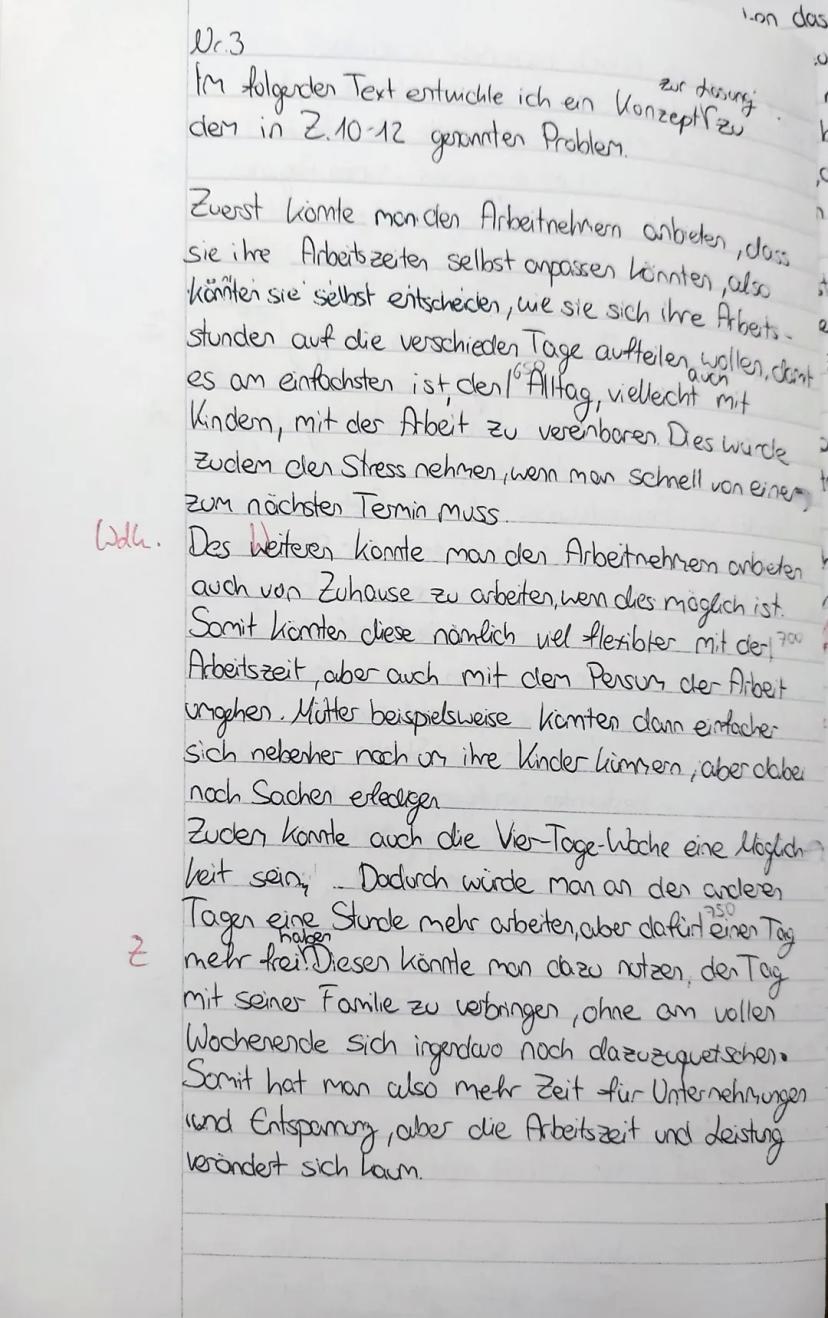 ion das
Nr.3
Im folgenden Text entwickle ich ein Konzept zur Lösung zu
dem in Z.10-12 genannten Problem.
Zuerst könnte man den Arbeitnehmern anbieten, dass
sie ihre Arbeitszeiten selbst anpassen könnten, also
könnten sie selbst entscheiden, wie sie sich ihre Arbeits-
stunden auf die verschieden Tage aufteilen wollen, damit
es am einfachsten ist, den 650 Alltag, vielleicht auch mit
Kindern, mit der Arbeit zu vereinbaren. Dies würde
zudem den Stress nehmen, wenn man schnell von einem
zum nächsten Termin muss.
Wdh. Des Weiteren könnte man den Arbeitnehmern anbieten
auch von Zuhause zu arbeiten, wenn dies möglich ist.
Somit könnten diese nämlich viel flexibler mit der 700
Arbeitszeit, aber auch mit dem Pensum der Arbeit
umgehen. Mütter beispielsweise könnten dann einfacher
sich nebenher noch um ihre Kinder kümmern, aber dabei
noch Sachen erledigen
Zudem könnte auch die Vier-Tage-Woche eine Möglich
keit sein, Dadurch würde man an den anderen
Tagen eine Stunde mehr arbeiten, aber dafür 750 einen Tag
Z mehr frei haben. Diesen könnte man dazu nutzen, den Tag
mit seiner Familie zu verbringen, ohne am vollen
Wochenende sich irgendwo noch dazuzuquetschen.
Somit hat man also mehr Zeit für Unternehmungen
und Entspannung, aber die Arbeitszeit und Leistung
verändert sich kaum.